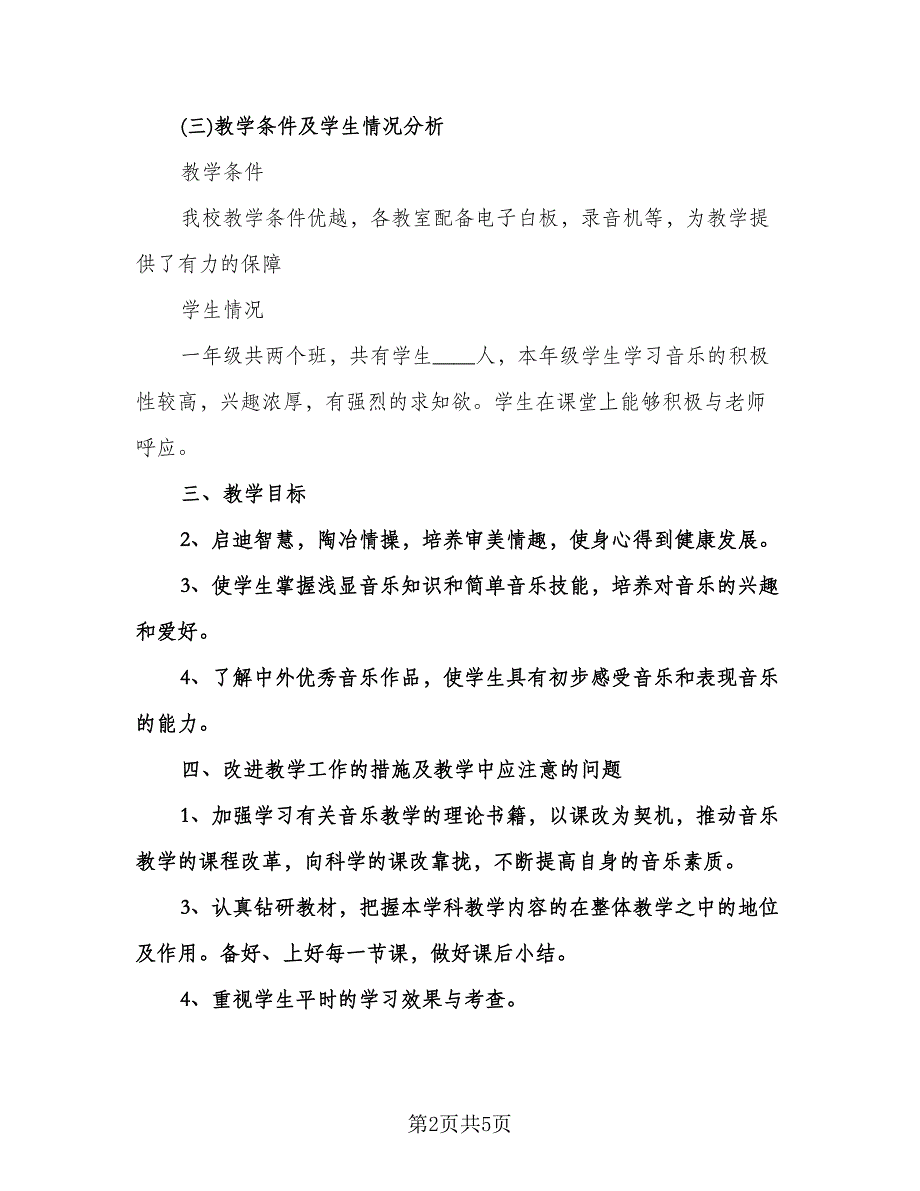 (三)教学条件及学生情况分析
教学条件
我校教学条件优越，各教室配备电子白板，录音机等，为教学提
供了有力的保障
学生情况
一年级共两个班，共有学生____人，本年级学生学习音乐的积极
性较高，兴趣浓厚，有强烈的求知欲。学生在课堂上能够积极与老师
呼应。
三、教学目标
2、启迪智慧，陶冶情操，培养审美情趣，使身心得到健康发展。
3、使学生掌握浅显音乐知识和简单音乐技能，培养对音乐的兴趣
和爱好。
4、了解中外优秀音乐作品，使学生具有初步感受音乐和表现音乐
的能力。
四、改进教学工作的措施及教学中应注意的问题
1、加强学习有关音乐教学的理论书籍，以课改为契机，推动音乐
教学的课程改革，向科学的课改靠找，不断提高自身的音乐素质。
3、认真钻研教材，把握本学科教学内容的在整体教学之中的地位
及作用。备好、上好每一节课，做好课后小结。
4、重视学生平时的学习效果与考查。
第2页共5页